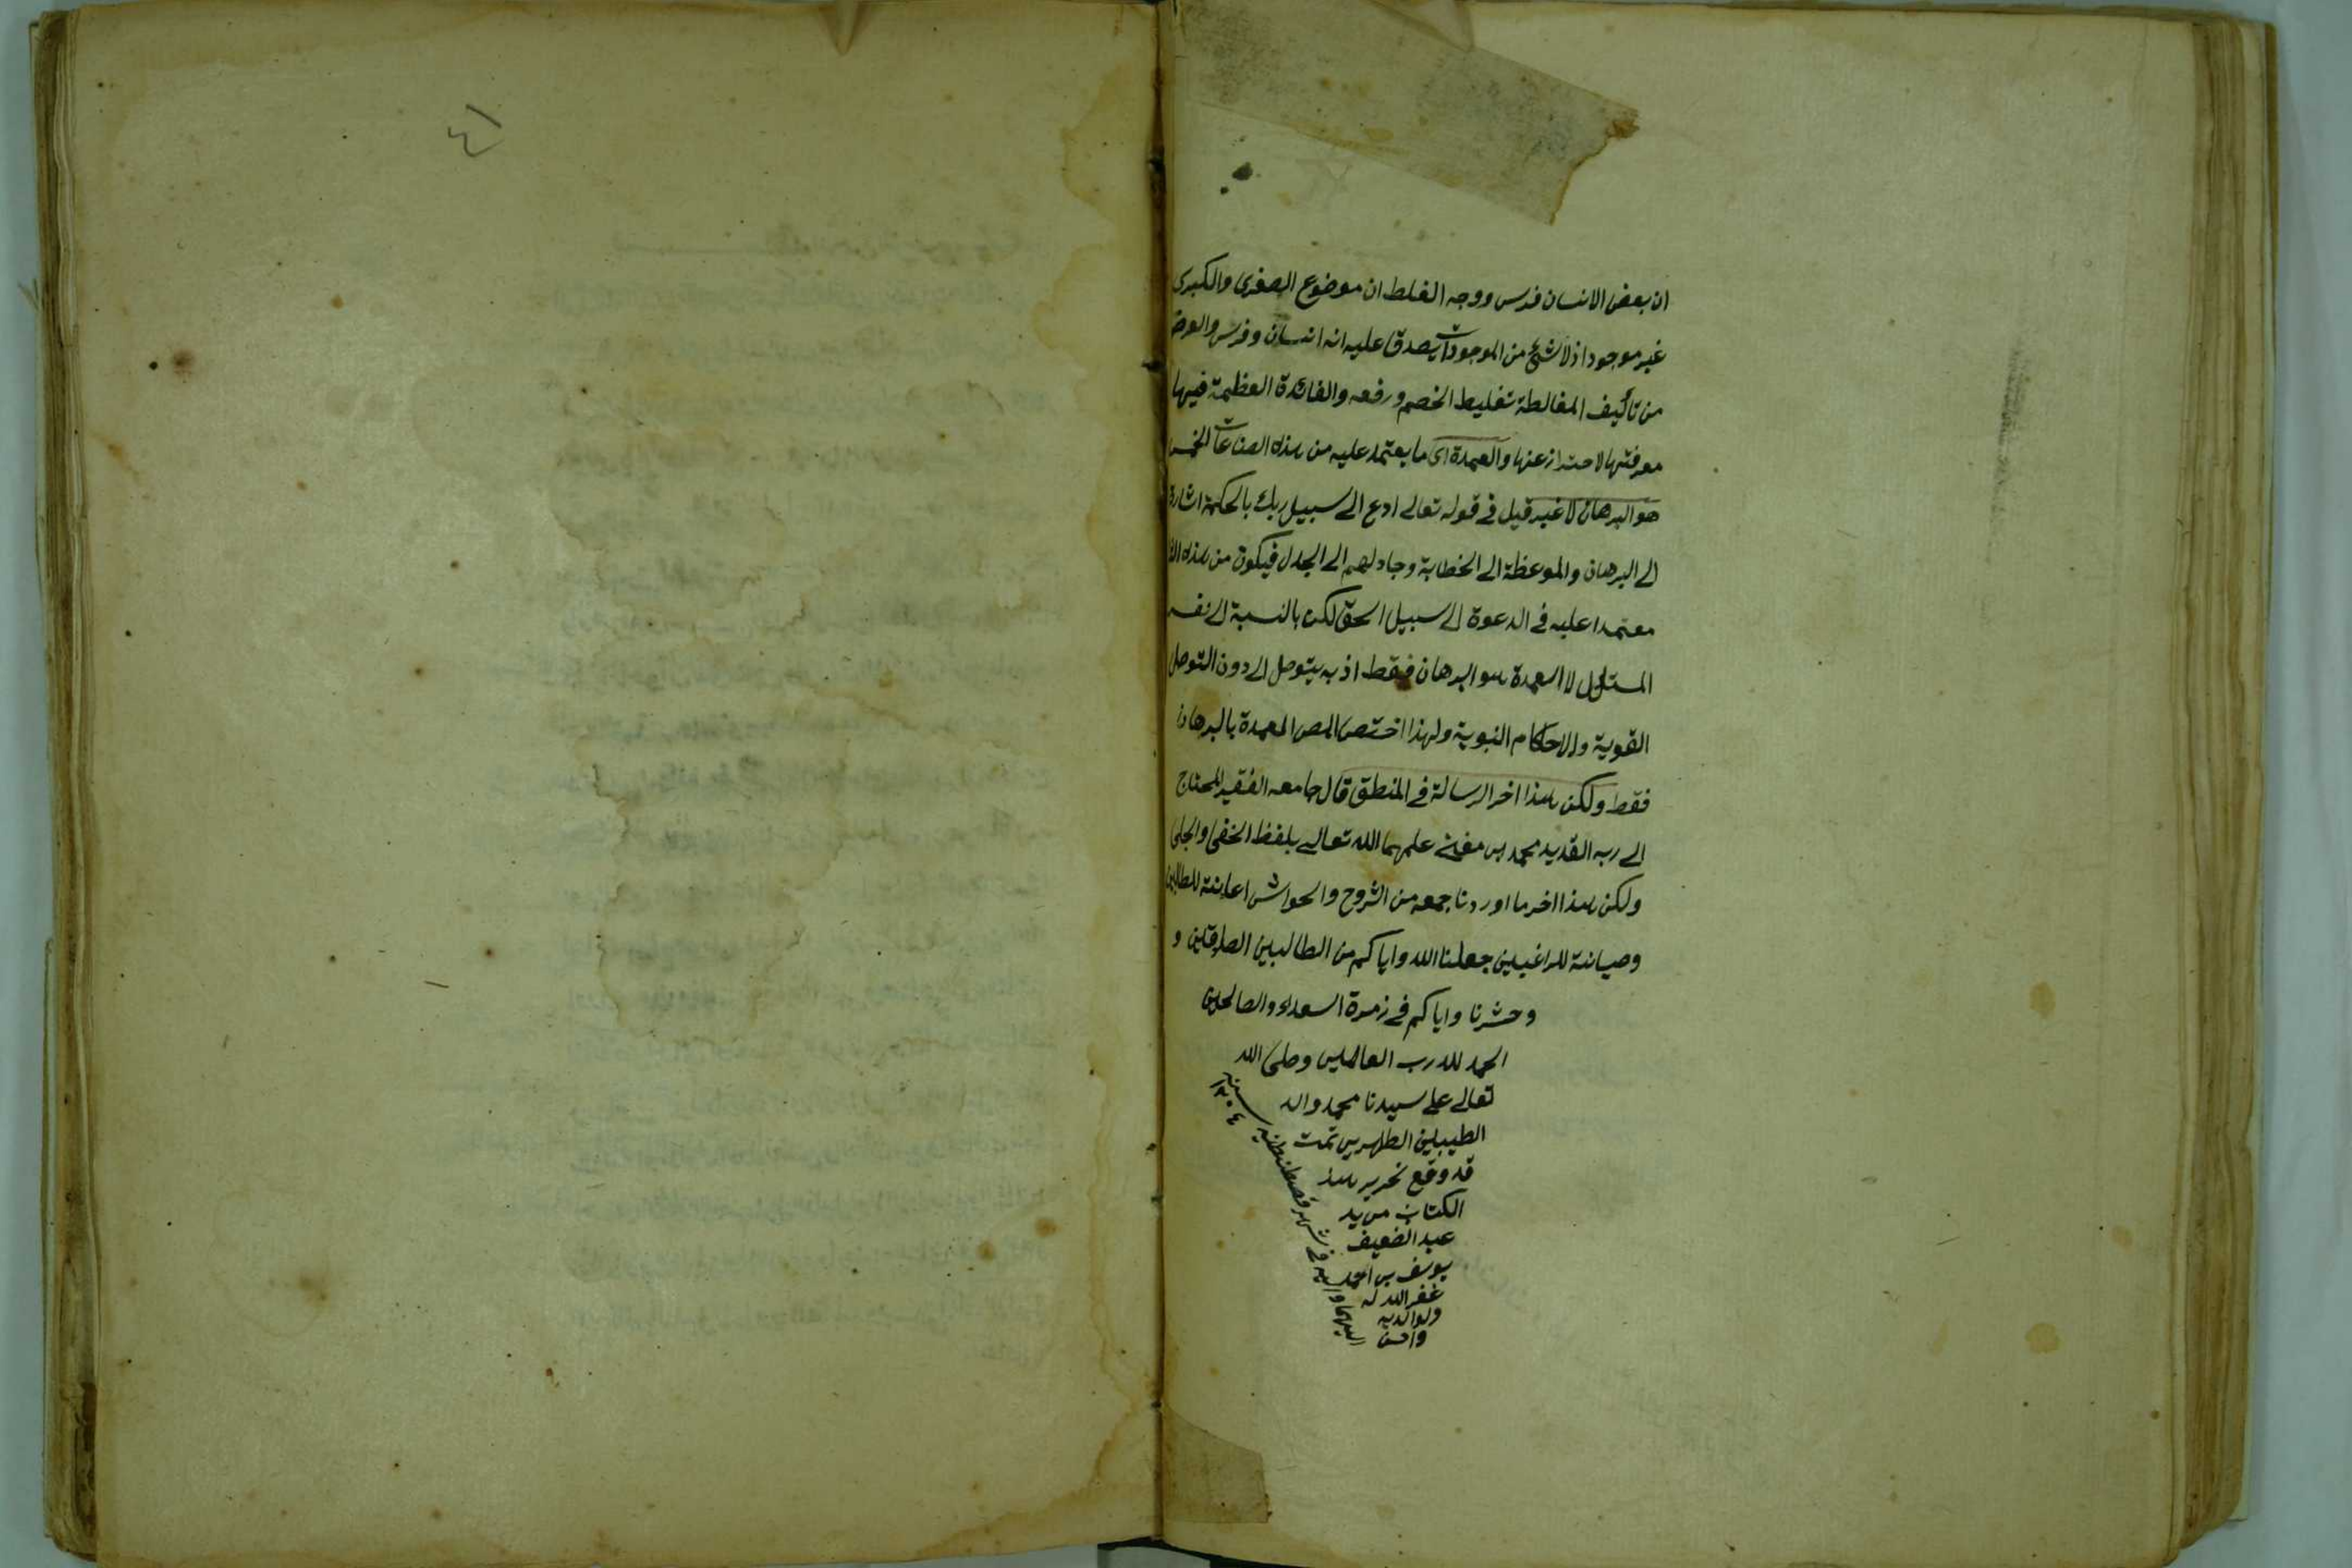 ان بعض الانسان فرس ووجه الغلط ان موضوع الصغرى والكبرى
غير موجود اذ لا شئ من الموجودات يصدق عليه انه انسان وفرس والغرض
من تأليف المغالطة تغليط الخصم ورفعه والفائدة العظيمة فيها
معرفتها لاحتراز عنها والعمدة اى ما يعتمد عليه من هذه الصناعات الخمس
هو البرهان لا غير قيل فى قوله تعالى ادع الى سبيل ربك بالحكمة اشارة
الى البرهان والموعظة الى الخطابة وجادلهم الى الجدل فيكون من هذه
معتمدا عليه فى الدعوة الى سبيل الحق لكن بالنسبة الى نفس
المستدل لا العمدة هو البرهان فقط اذ به يتوصل الى دون التوصل
القوية والاحكام النبوية ولهذا اختص المص العمدة بالبرهان
فقط وليكن هذا اخر الرسالة فى المنطق قال جامعه الفقير المحتاج
الى ربه القدير محمد بن علمهما الله تعالى بلفظ الخفى والجلى
وليكن هذا اخر ما اوردنا جمعه من الشروح والحواشى اعانة للطالبين
وصيانة للراغبين جعلنا الله واياكم من الطالبين الصادقين و
وحشرنا واياكم فى زمرة السعداء والصالحين
الحمد لله رب العالمين وصلى الله
تعالى على سيدنا محمد واله
الطيبين الطاهرين تمت
قد وقع تحرير هذا
الكتاب من يد
عبد الضعيف
يوسف بن احمد
غفر الله له
ولوالديه
واحسن
اليهما واليه فى شهر قسطنطنيه
سنه ١٢٠٤
٤١